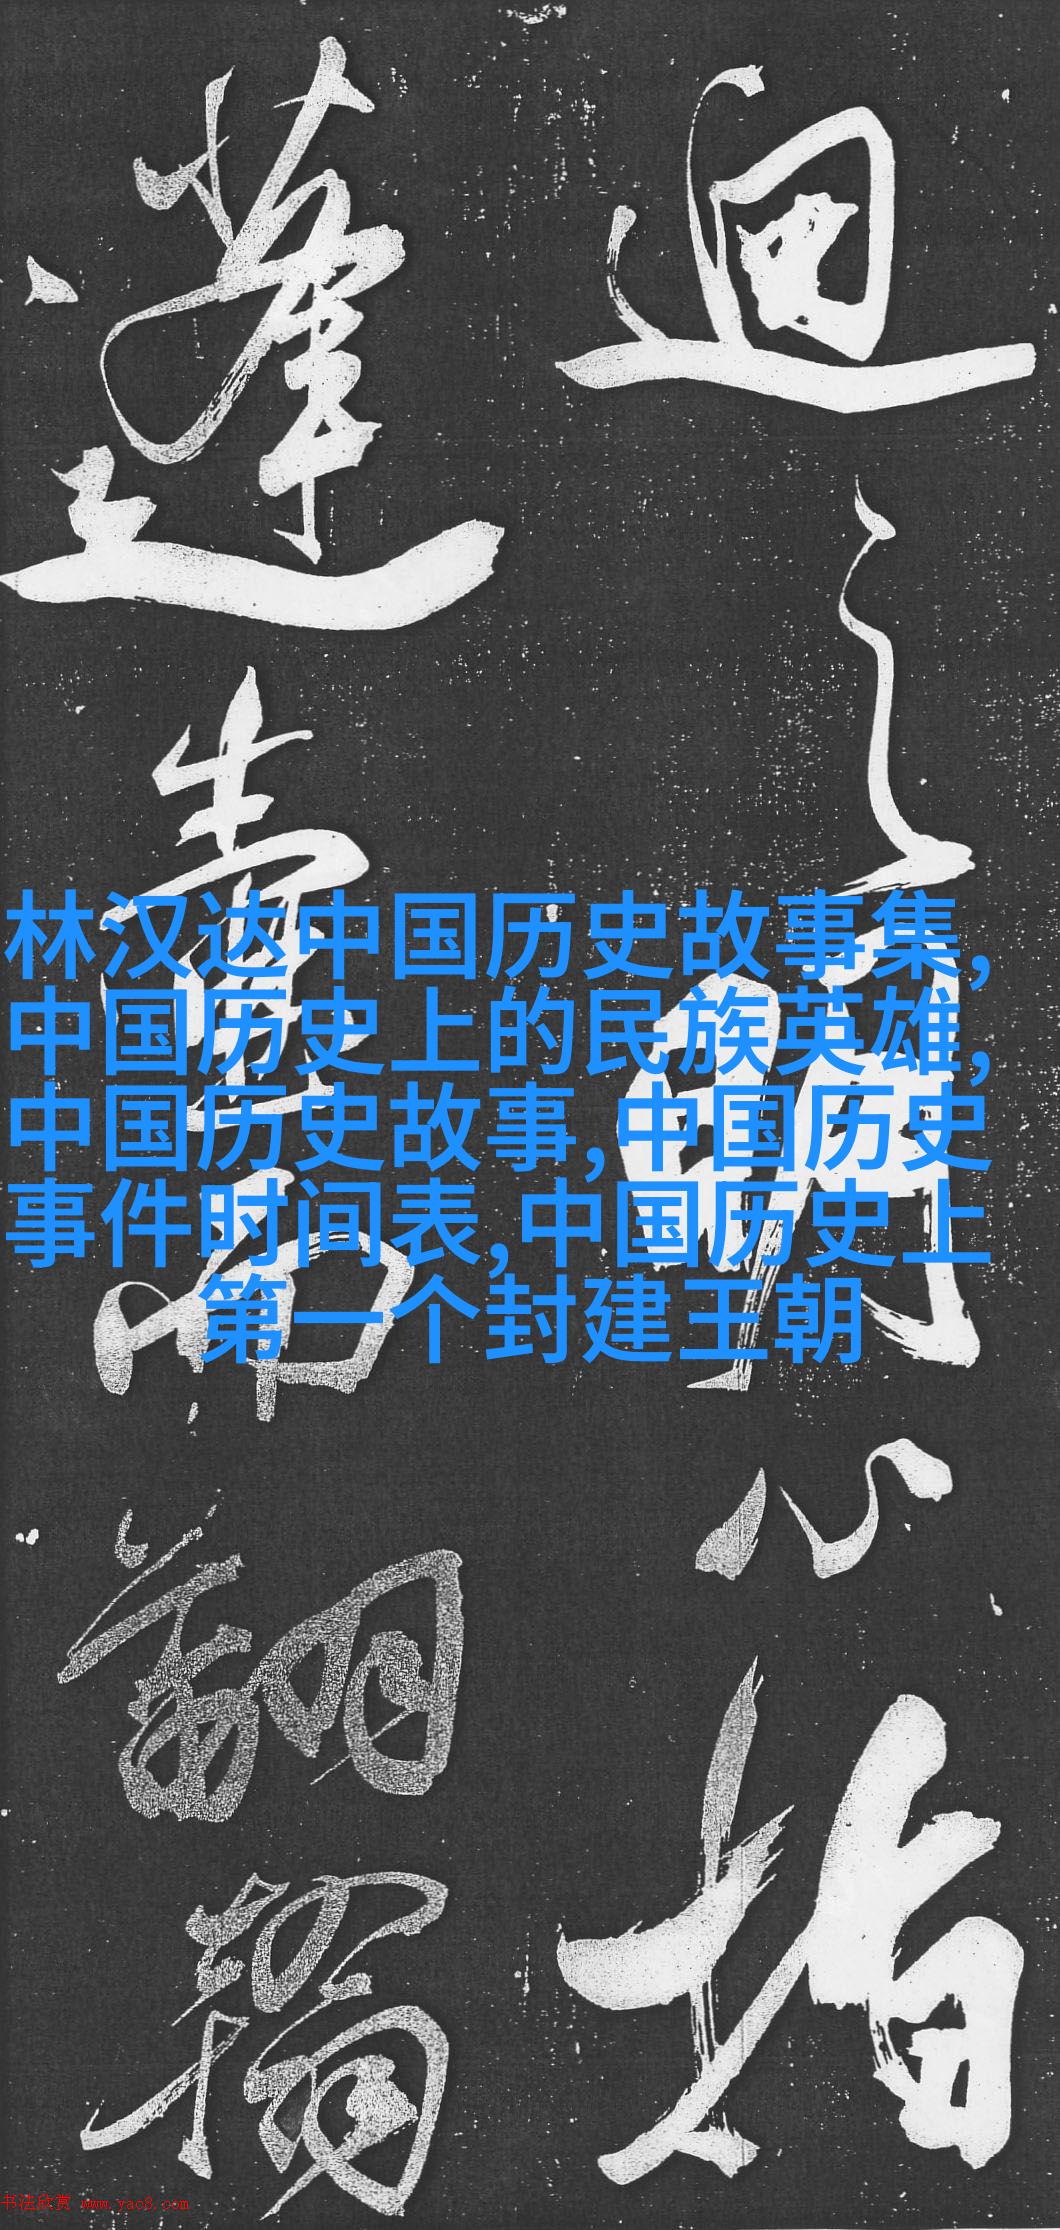 迴
之
明心
指
蓬
壺而
翻
翰
林汉达中国历史故事集,
中国历史上的民族英雄,
中国历史故事,中国历史
事件时间表,中国历史上
第一个封建王朝
书法欣赏 www.yac8.com